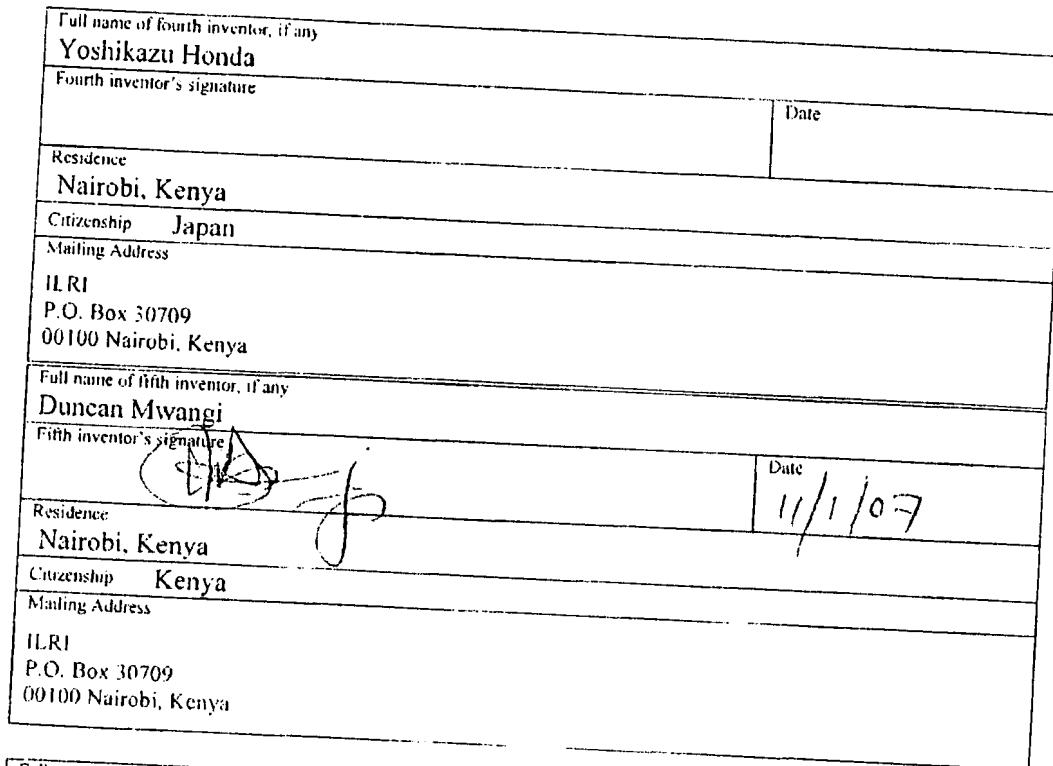 Full name of fourth inventor, if any
Yoshikazu Honda
Fourth inventor's signature
Date
Residence
Nairobi, Kenya
Citizenship Japan
Mailing Address
ILRI
P.O. Box 30709
00100 Nairobi, Kenya
Full name of fifth inventor, if any
Duncan Mwangi
Fifth inventor's signature
Date
11/1/07
Residence
Nairobi, Kenya
Citizenship Kenya
Mailing Address
ILRI
P.O. Box 30709
00100 Nairobi, Kenya